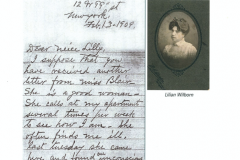 New York.
Feb. 13-1909.
Dear Neice Lilly.
I suppose that you
have received another
letter from Miss
She is a good woman-
She calls at my apartment
several times per week
to see how I am. She
often finds me ill.
Last Tuesday she came
here and found
Lillian Wilborn